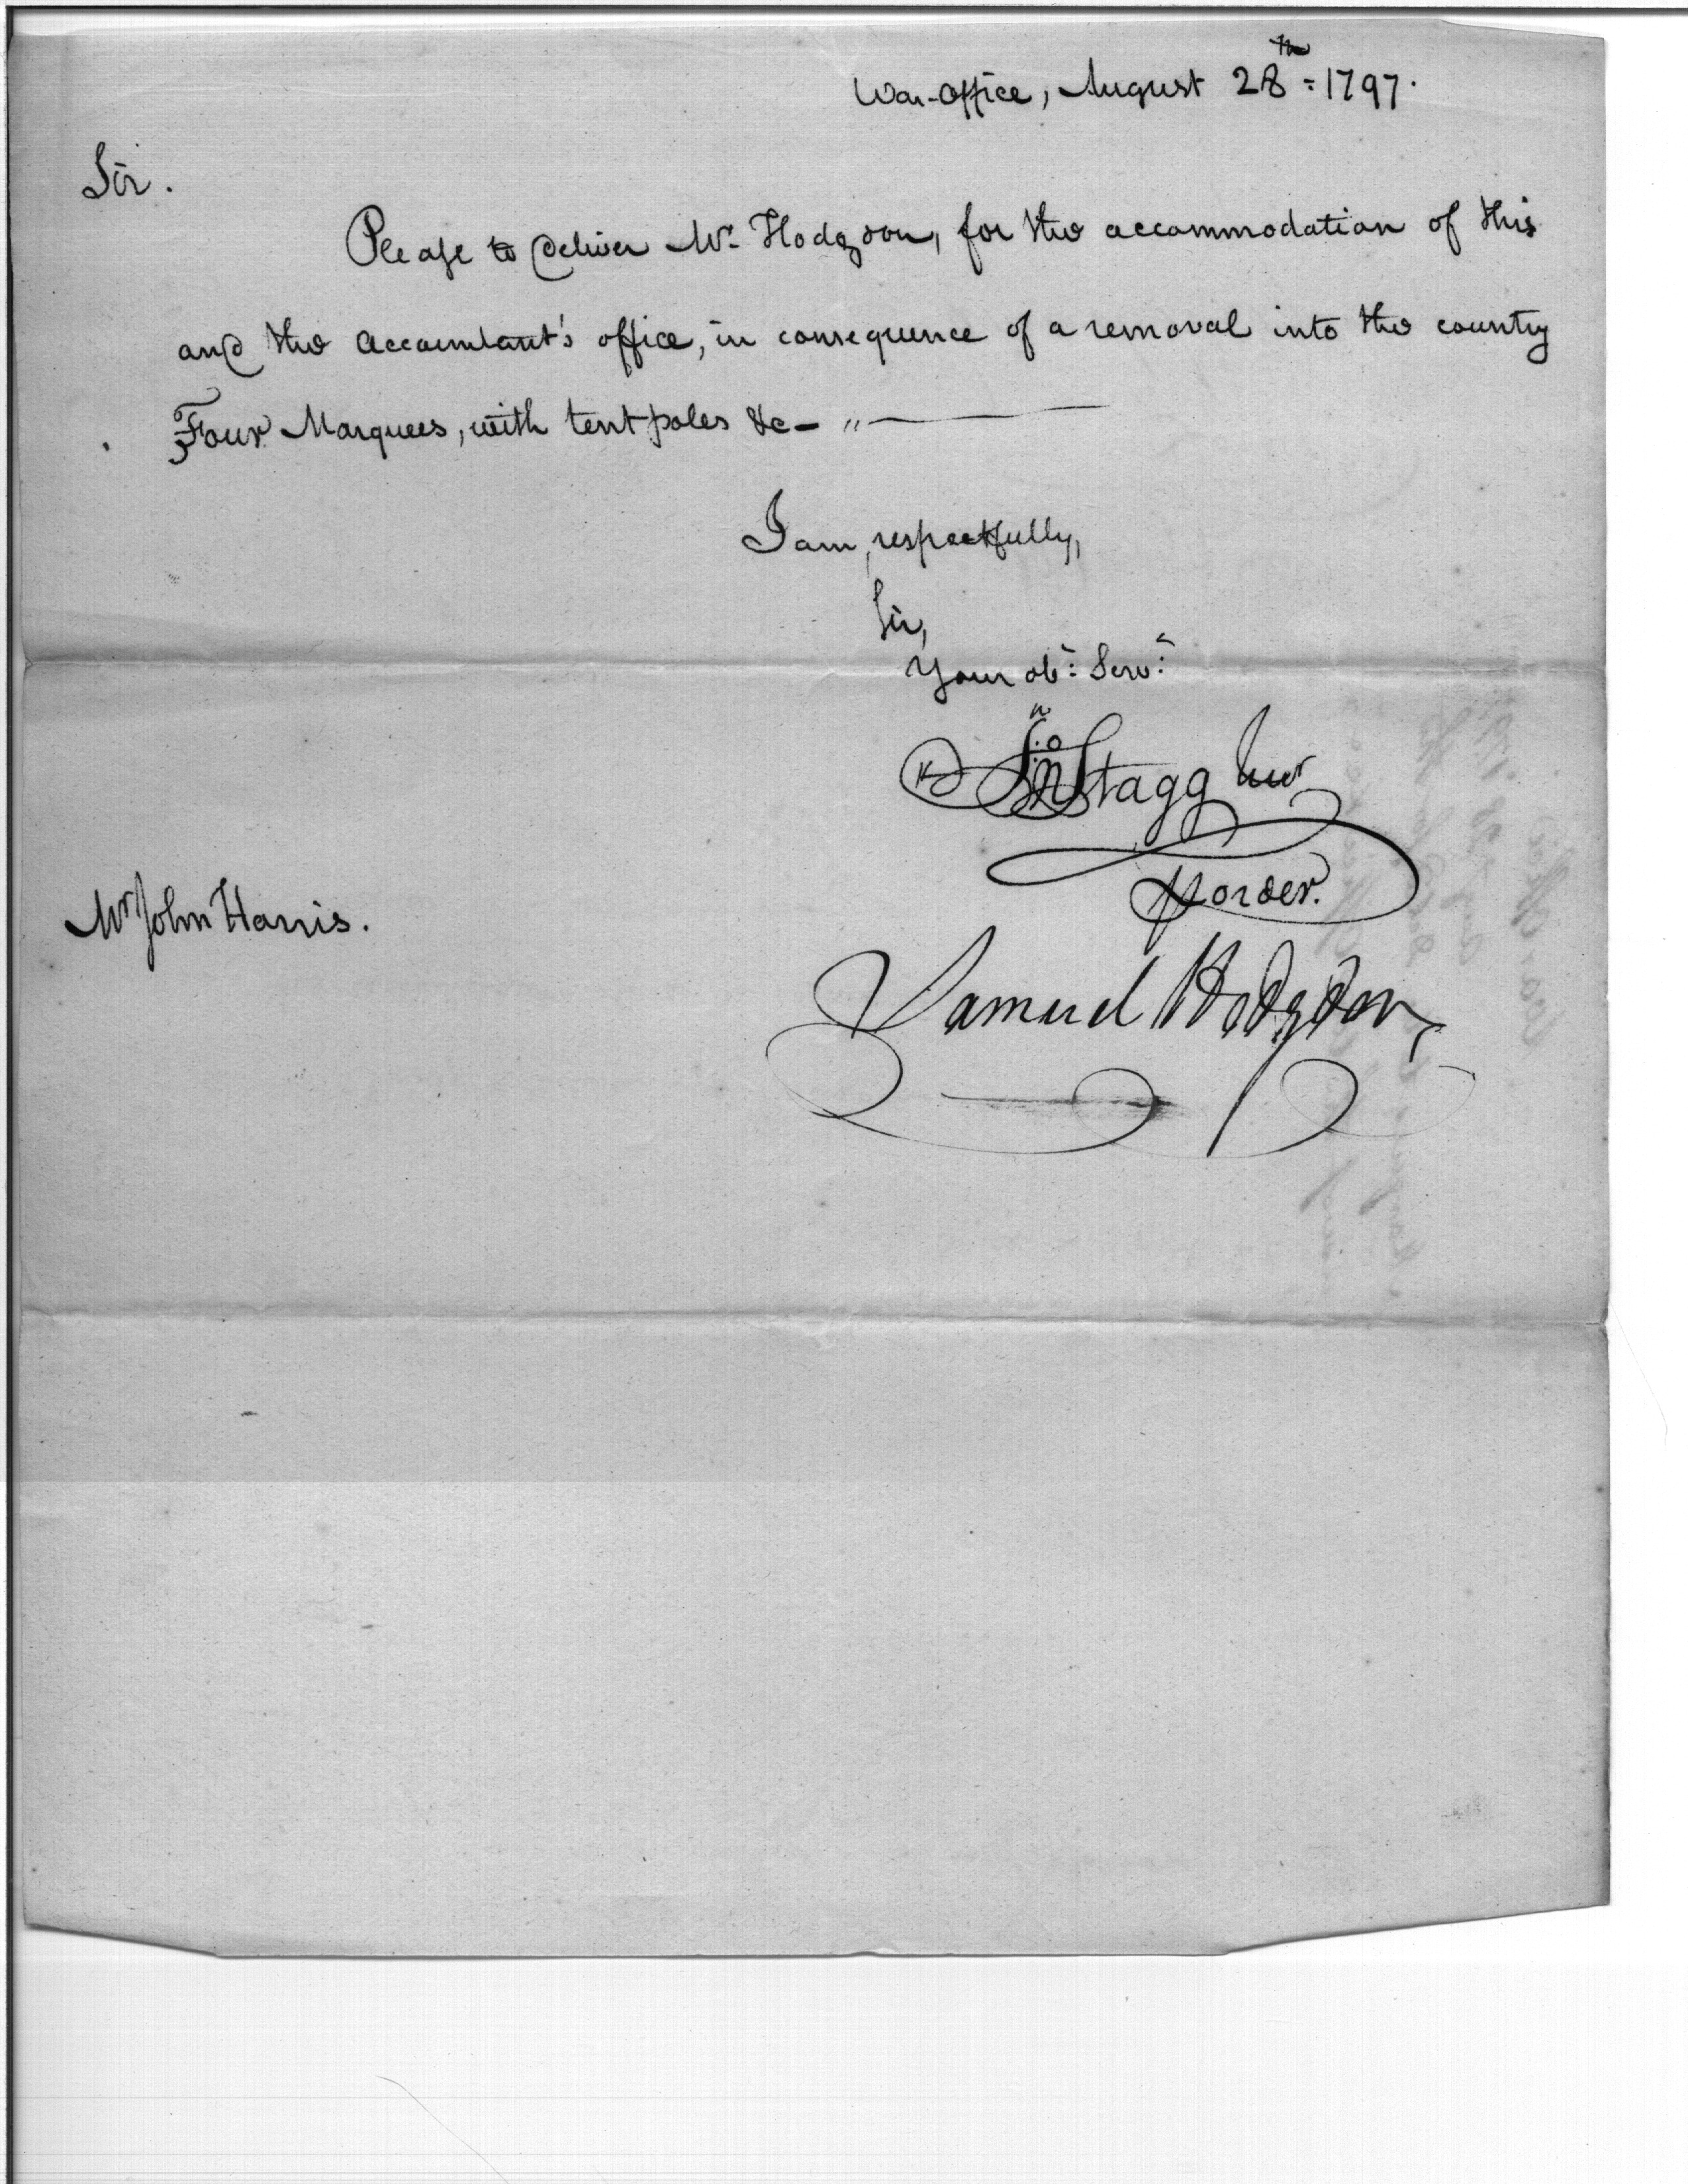 War-Office, August 28th = 1797.
Sir.
Please to deliver Mr. Hodgdon, for the accommodation of this
and the Accountant's office, in consequence of a removal into the country
Four Marquees, with tent poles &c - "
I am, respectfully,
Sir,
Your obt: Servt:
Jno Stagg Junr
p order.
Mr John Harris.
Samuel Hodgdon